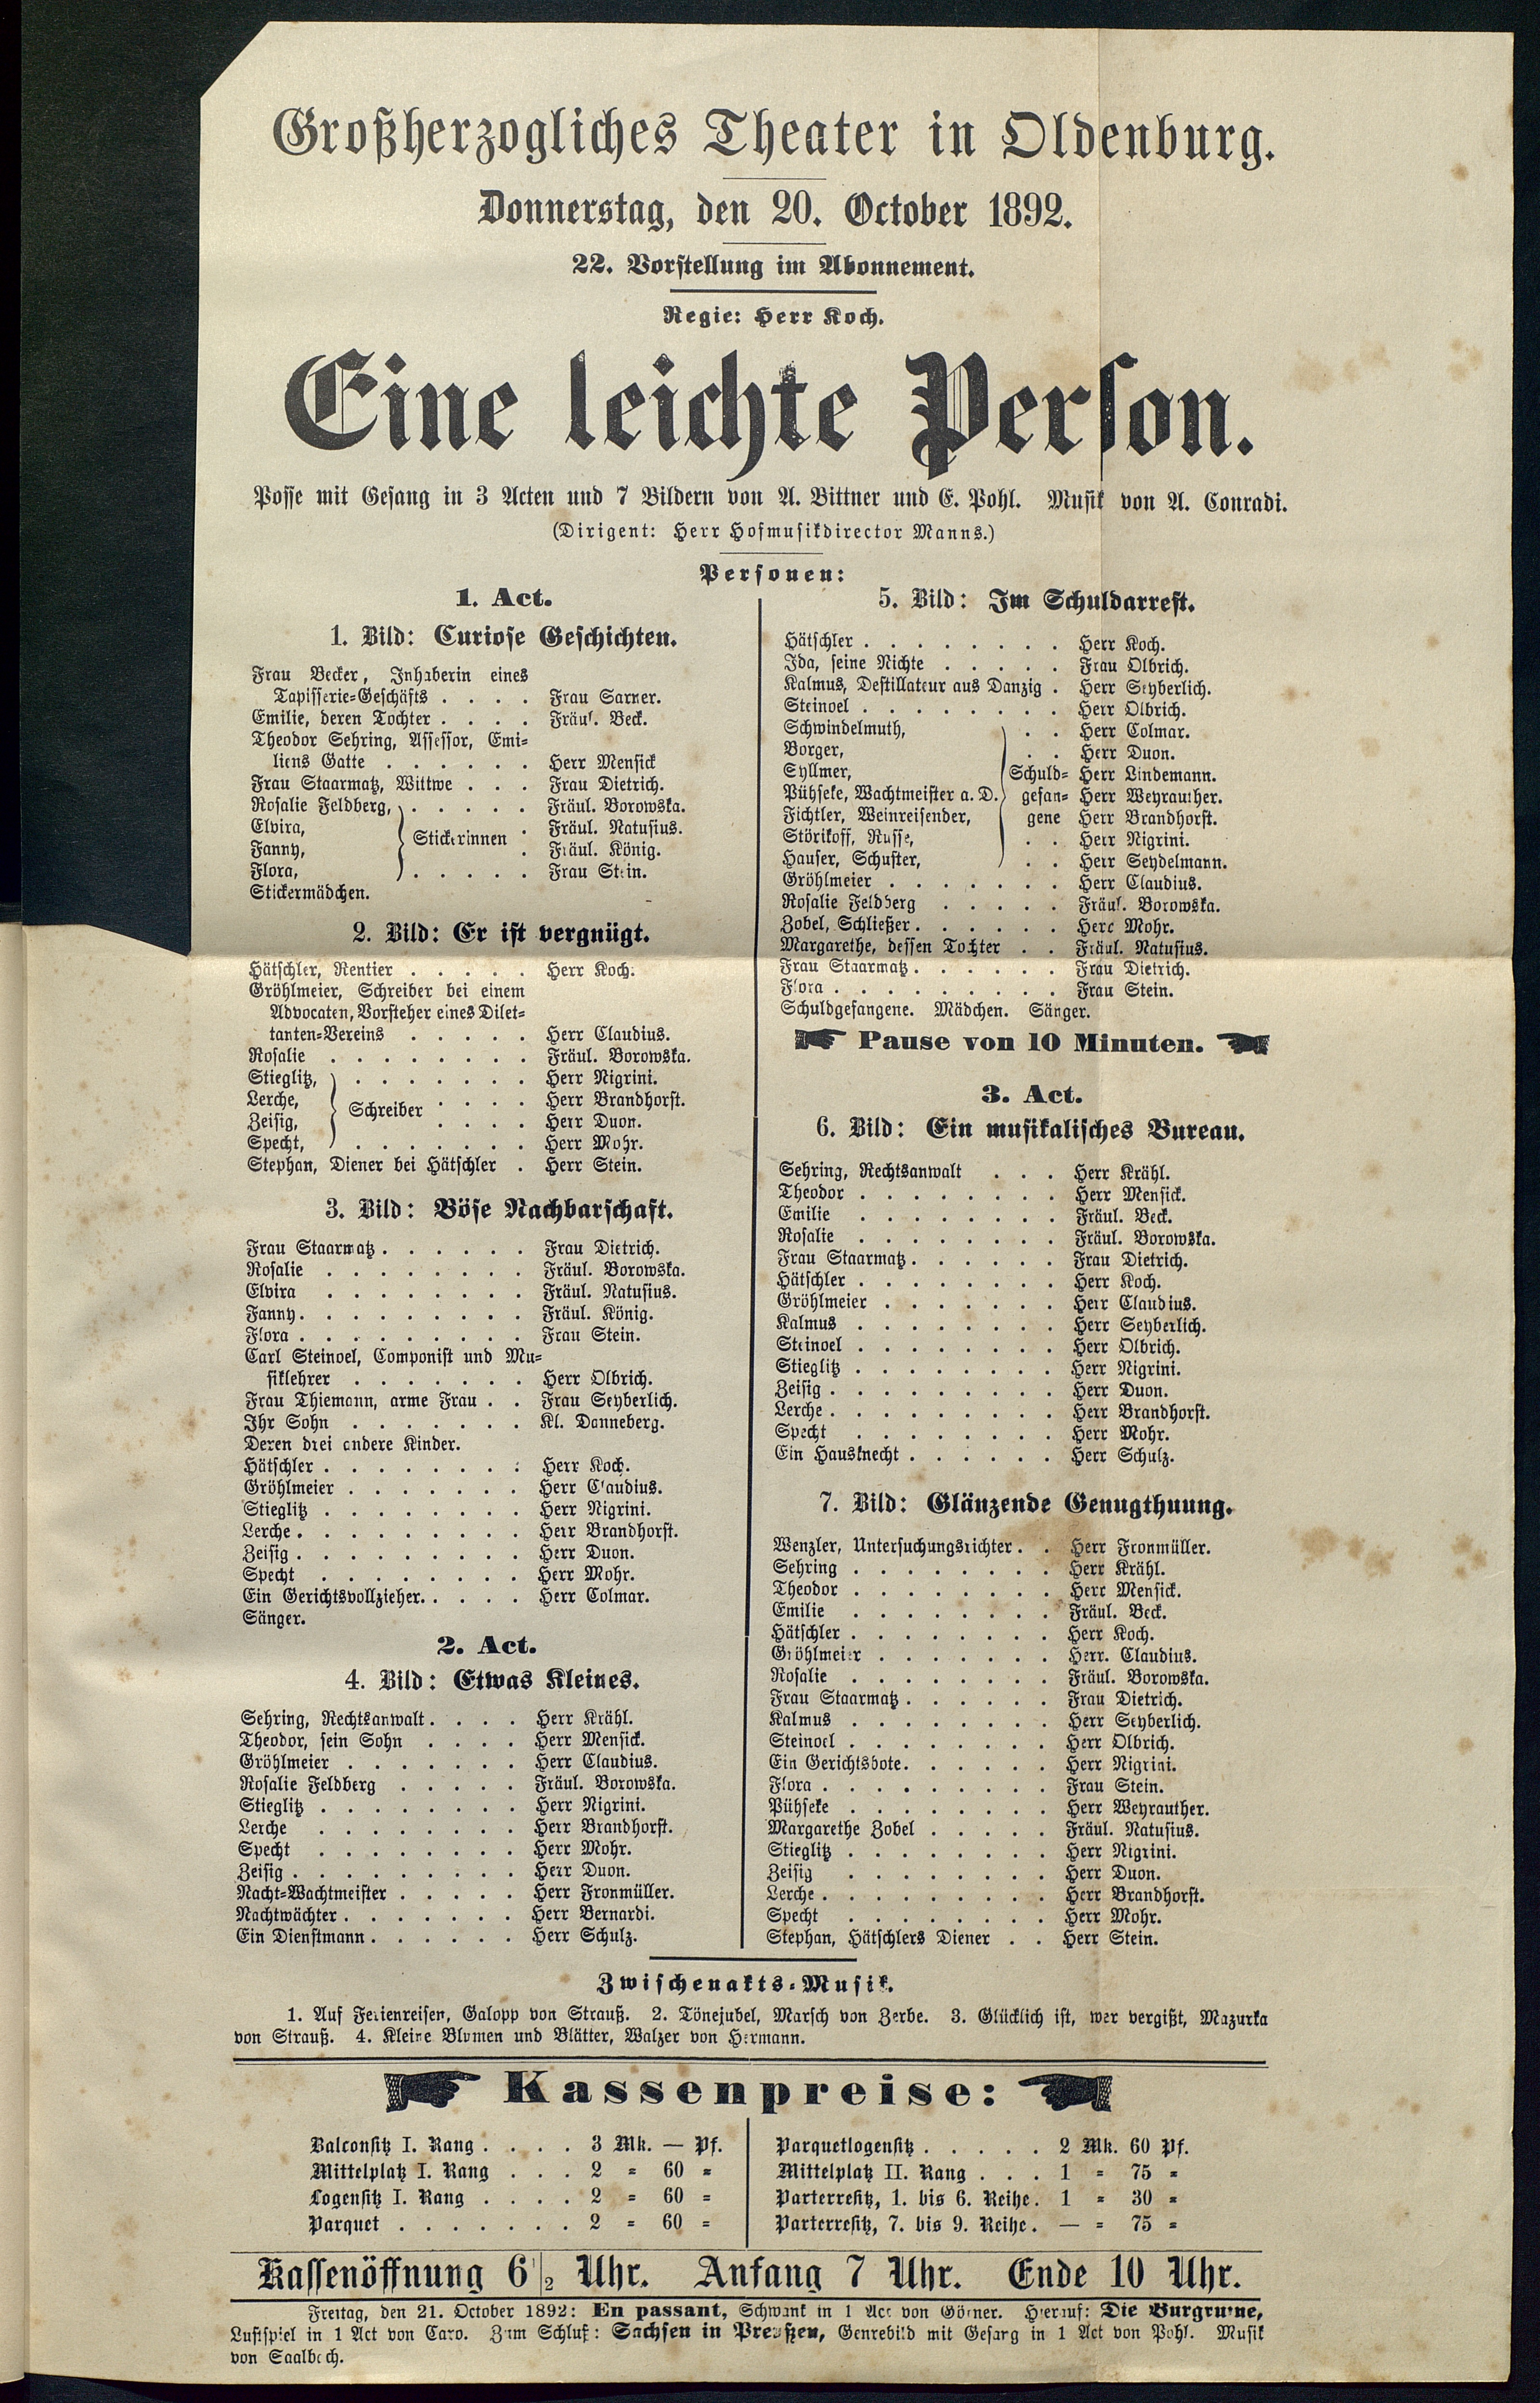 Großherzogliches Theater in Oldenburg.
Donnerstag, den 20. October 1892.
22. Vorstellung im Abonnement.
Regie: Herr Koch.
Eine leichte Person.
Posse mit Gesang in 3 Acten und 7 Bildern von A. Bittner und E. Pohl. Musik von A. Conradi.
(Dirigent: Herr Hofmusikdirector Manns.)
Personen:
1. Act.
1. Bild: Curiose Geschichten.
Frau Becker, Inhaberin eines
Tapisserie=Geschäfts . . . . Frau Sarner.
Emilie, deren Tochter . . . . Fräul. Beck.
Theodor Sehring, Assessor, Emi=
liens Gatte . . . . . . Herr Mensick
Frau Staarmatz, Wittwe . . . Frau Dietrich.
Rosalie Feldberg, . . . . . Fräul. Borowska.
Elvira, Stickerinnen . Fräul. Natusius.
Fanny, . Fräul. König.
Flora, . . . . . Frau Stein.
Stickermädchen.
2. Bild: Er ist vergnügt.
Hätschler, Rentier . . . . . Herr Koch.
Gröhlmeier, Schreiber bei einem
Advocaten, Vorsteher eines Dilet=
tanten=Vereins . . . . . Herr Claudius.
Rosalie . . . . . . . . Fräul. Borowska.
Stieglitz, . . . . . . . Herr Nigrini.
Lerche, Schreiber . . . . Herr Brandhorst.
Zeisig, . . . . Herr Duon.
Specht, . . . . . . . Herr Mohr.
Stephan, Diener bei Hätschler . Herr Stein.
3. Bild: Böse Nachbarschaft.
Frau Staarmatz . . . . . . Frau Dietrich.
Rosalie . . . . . . . . Fräul. Borowska.
Elvira . . . . . . . . Fräul. Natusius.
Fanny . . . . . . . . . Fräul. König.
Flora . . . . . . . . . Frau Stein.
Carl Steinoel, Componist und Mu=
siklehrer . . . . . . . Herr Olbrich.
Frau Thiemann, arme Frau . . Frau Seyberlich.
Ihr Sohn . . . . . . . Kl. Danneberg.
Deren drei andere Kinder.
Hätschler . . . . . . . . Herr Koch.
Gröhlmeier . . . . . . . Herr Claudius.
Stieglitz . . . . . . . . Herr Nigrini.
Lerche . . . . . . . . . Herr Brandhorst.
Zeisig . . . . . . . . . Herr Duon.
Specht . . . . . . . . Herr Mohr.
Ein Gerichtsvollzieher. . . . . Herr Colmar.
Sänger.
2. Act.
4. Bild: Etwas Kleines.
Sehring, Rechtsanwalt . . . . Herr Krähl.
Theodor, sein Sohn . . . . Herr Mensick.
Gröhlmeier . . . . . . . Herr Claudius.
Rosalie Feldberg . . . . . Fräul. Borowska.
Stieglitz . . . . . . . . Herr Nigrini.
Lerche . . . . . . . . Herr Brandhorst.
Specht . . . . . . . . Herr Mohr.
Zeisig . . . . . . . . . Herr Duon.
Nacht=Wachtmeister . . . . . Herr Fronmüller.
Nachtwächter . . . . . . . Herr Bernardi.
Ein Dienstmann . . . . . . Herr Schulz.
5. Bild: Im Schuldarrest.
Hätschler . . . . . . . . Herr Koch.
Ida, seine Nichte . . . . . Frau Olbrich.
Kalmus, Destillateur aus Danzig . Herr Seyberlich.
Steinoel . . . . . . . . Herr Olbrich.
Schwindelmuth, . . Herr Colmar.
Borger, . . Herr Duon.
Syllmer, Schuld= Herr Lindemann.
Pühseke, Wachtmeister a. D. gefan= Herr Weyrauther.
Fichtler, Weinreisender, gene Herr Brandhorst.
Störikoff, Russe, . . Herr Nigrini.
Hauser, Schuster, . . Herr Seydelmann.
Gröhlmeier . . . . . . . Herr Claudius.
Rosalie Feldberg . . . . . Fräul. Borowska.
Zobel, Schließer . . . . . . Herr Mohr.
Margarethe, dessen Tochter . . Fräul. Natusius.
Frau Staarmatz . . . . . . Frau Dietrich.
Flora . . . . . . . . . Frau Stein.
Schuldgefangene. Mädchen. Sänger.
Pause von 10 Minuten.
3. Act.
6. Bild: Ein musikalisches Bureau.
Sehring, Rechtsanwalt . . . Herr Krähl.
Theodor . . . . . . . . Herr Mensick.
Emilie . . . . . . . . Fräul. Beck.
Rosalie . . . . . . . . Fräul. Borowska.
Frau Staarmatz . . . . . . Frau Dietrich.
Hätschler . . . . . . . . Herr Koch.
Gröhlmeier . . . . . . . Herr Claudius.
Kalmus . . . . . . . . Herr Seyberlich.
Steinoel . . . . . . . . Herr Olbrich.
Stieglitz . . . . . . . . Herr Nigrini.
Zeisig . . . . . . . . . Herr Duon.
Lerche . . . . . . . . . Herr Brandhorst.
Specht . . . . . . . . Herr Mohr.
Ein Hausknecht . . . . . . Herr Schulz.
7. Bild: Glänzende Genugthuung.
Wenzler, Untersuchungsrichter . . Herr Fronmüller.
Sehring . . . . . . . . Herr Krähl.
Theodor . . . . . . . . Herr Mensick.
Emilie . . . . . . . . Fräul. Beck.
Hätschler . . . . . . . . Herr Koch.
Gröhlmeier . . . . . . . Herr. Claudius.
Rosalie . . . . . . . . Fräul. Borowska.
Frau Staarmatz . . . . . . Frau Dietrich.
Kalmus . . . . . . . . Herr Seyberlich.
Steinoel . . . . . . . . Herr Olbrich.
Ein Gerichtsbote . . . . . . Herr Nigrini.
Flora . . . . . . . . . Frau Stein.
Pühseke . . . . . . . . Herr Weyrauther.
Margarethe Zobel . . . . . Fräul. Natusius.
Stieglitz . . . . . . . . Herr Nigrini.
Zeisig . . . . . . . . Herr Duon.
Lerche . . . . . . . . . Herr Brandhorst.
Specht . . . . . . . . Herr Mohr.
Stephan, Hätschlers Diener . . Herr Stein.
Zwischenakts=Musik.
1. Auf Ferienreisen, Galopp von Strauß. 2. Tönejubel, Marsch von Zerbe. 3. Glücklich ist, wer vergißt, Mazurka
von Strauß. 4. Kleine Blumen und Blätter, Walzer von Hermann.
Kassenpreise:
Balconsitz I. Rang . . . . 3 Mk. — Pf.
Mittelplatz I. Rang . . . 2 = 60 =
Logensitz I. Rang . . . . 2 = 60 =
Parquet . . . . . . . 2 = 60 =
Parquetlogensitz . . . . . 2 Mk. 60 Pf.
Mittelplatz II. Rang . . . 1 = 75 =
Parterresitz, 1. bis 6. Reihe. 1 = 30 =
Parterresitz, 7. bis 9. Reihe. — = 75 =
Kassenöffnung 6 1/2 Uhr. Anfang 7 Uhr. Ende 10 Uhr.
Freitag, den 21. October 1892: En passant, Schwank in 1 Act von Görner. Hierauf: Die Burgruine,
Lustspiel in 1 Act von Caro. Zum Schluß: Sachsen in Preußen, Genrebild mit Gesang in 1 Act von Pohl. Musik
von Saalbach.